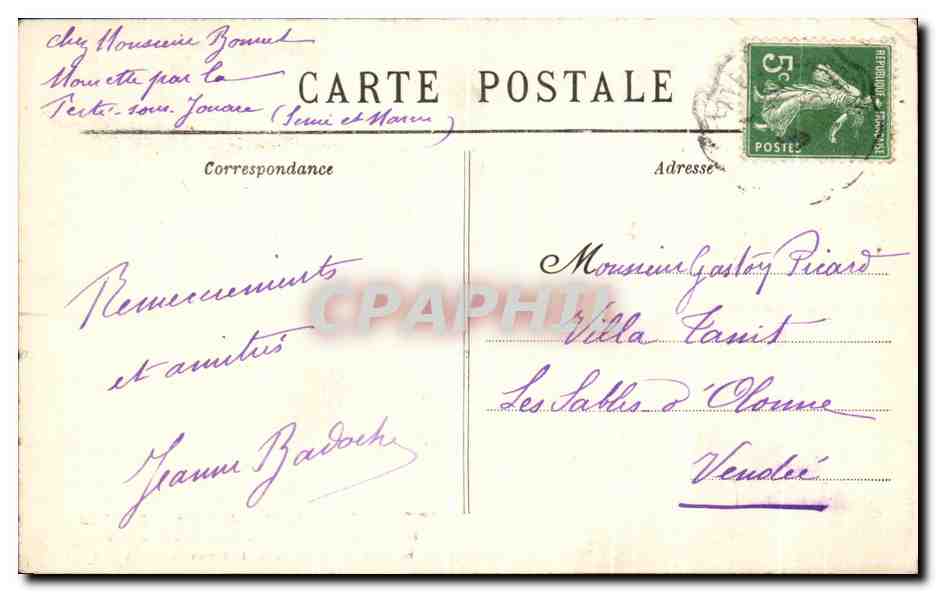 chez Monsieur Bonnet
Mouette par la
Ferté-sous-Jouare (Seine et Marne)
CARTE POSTALE
5c
REPUBLIQUE FRANCAISE
POSTES
Correspondance
Adresse
Remerciements
et amitiés
Jeanne Badoche
Monsieur Gaston Picard
Villa Tanit
Les Sables d'Olonne
Vendée
CPAPHIL